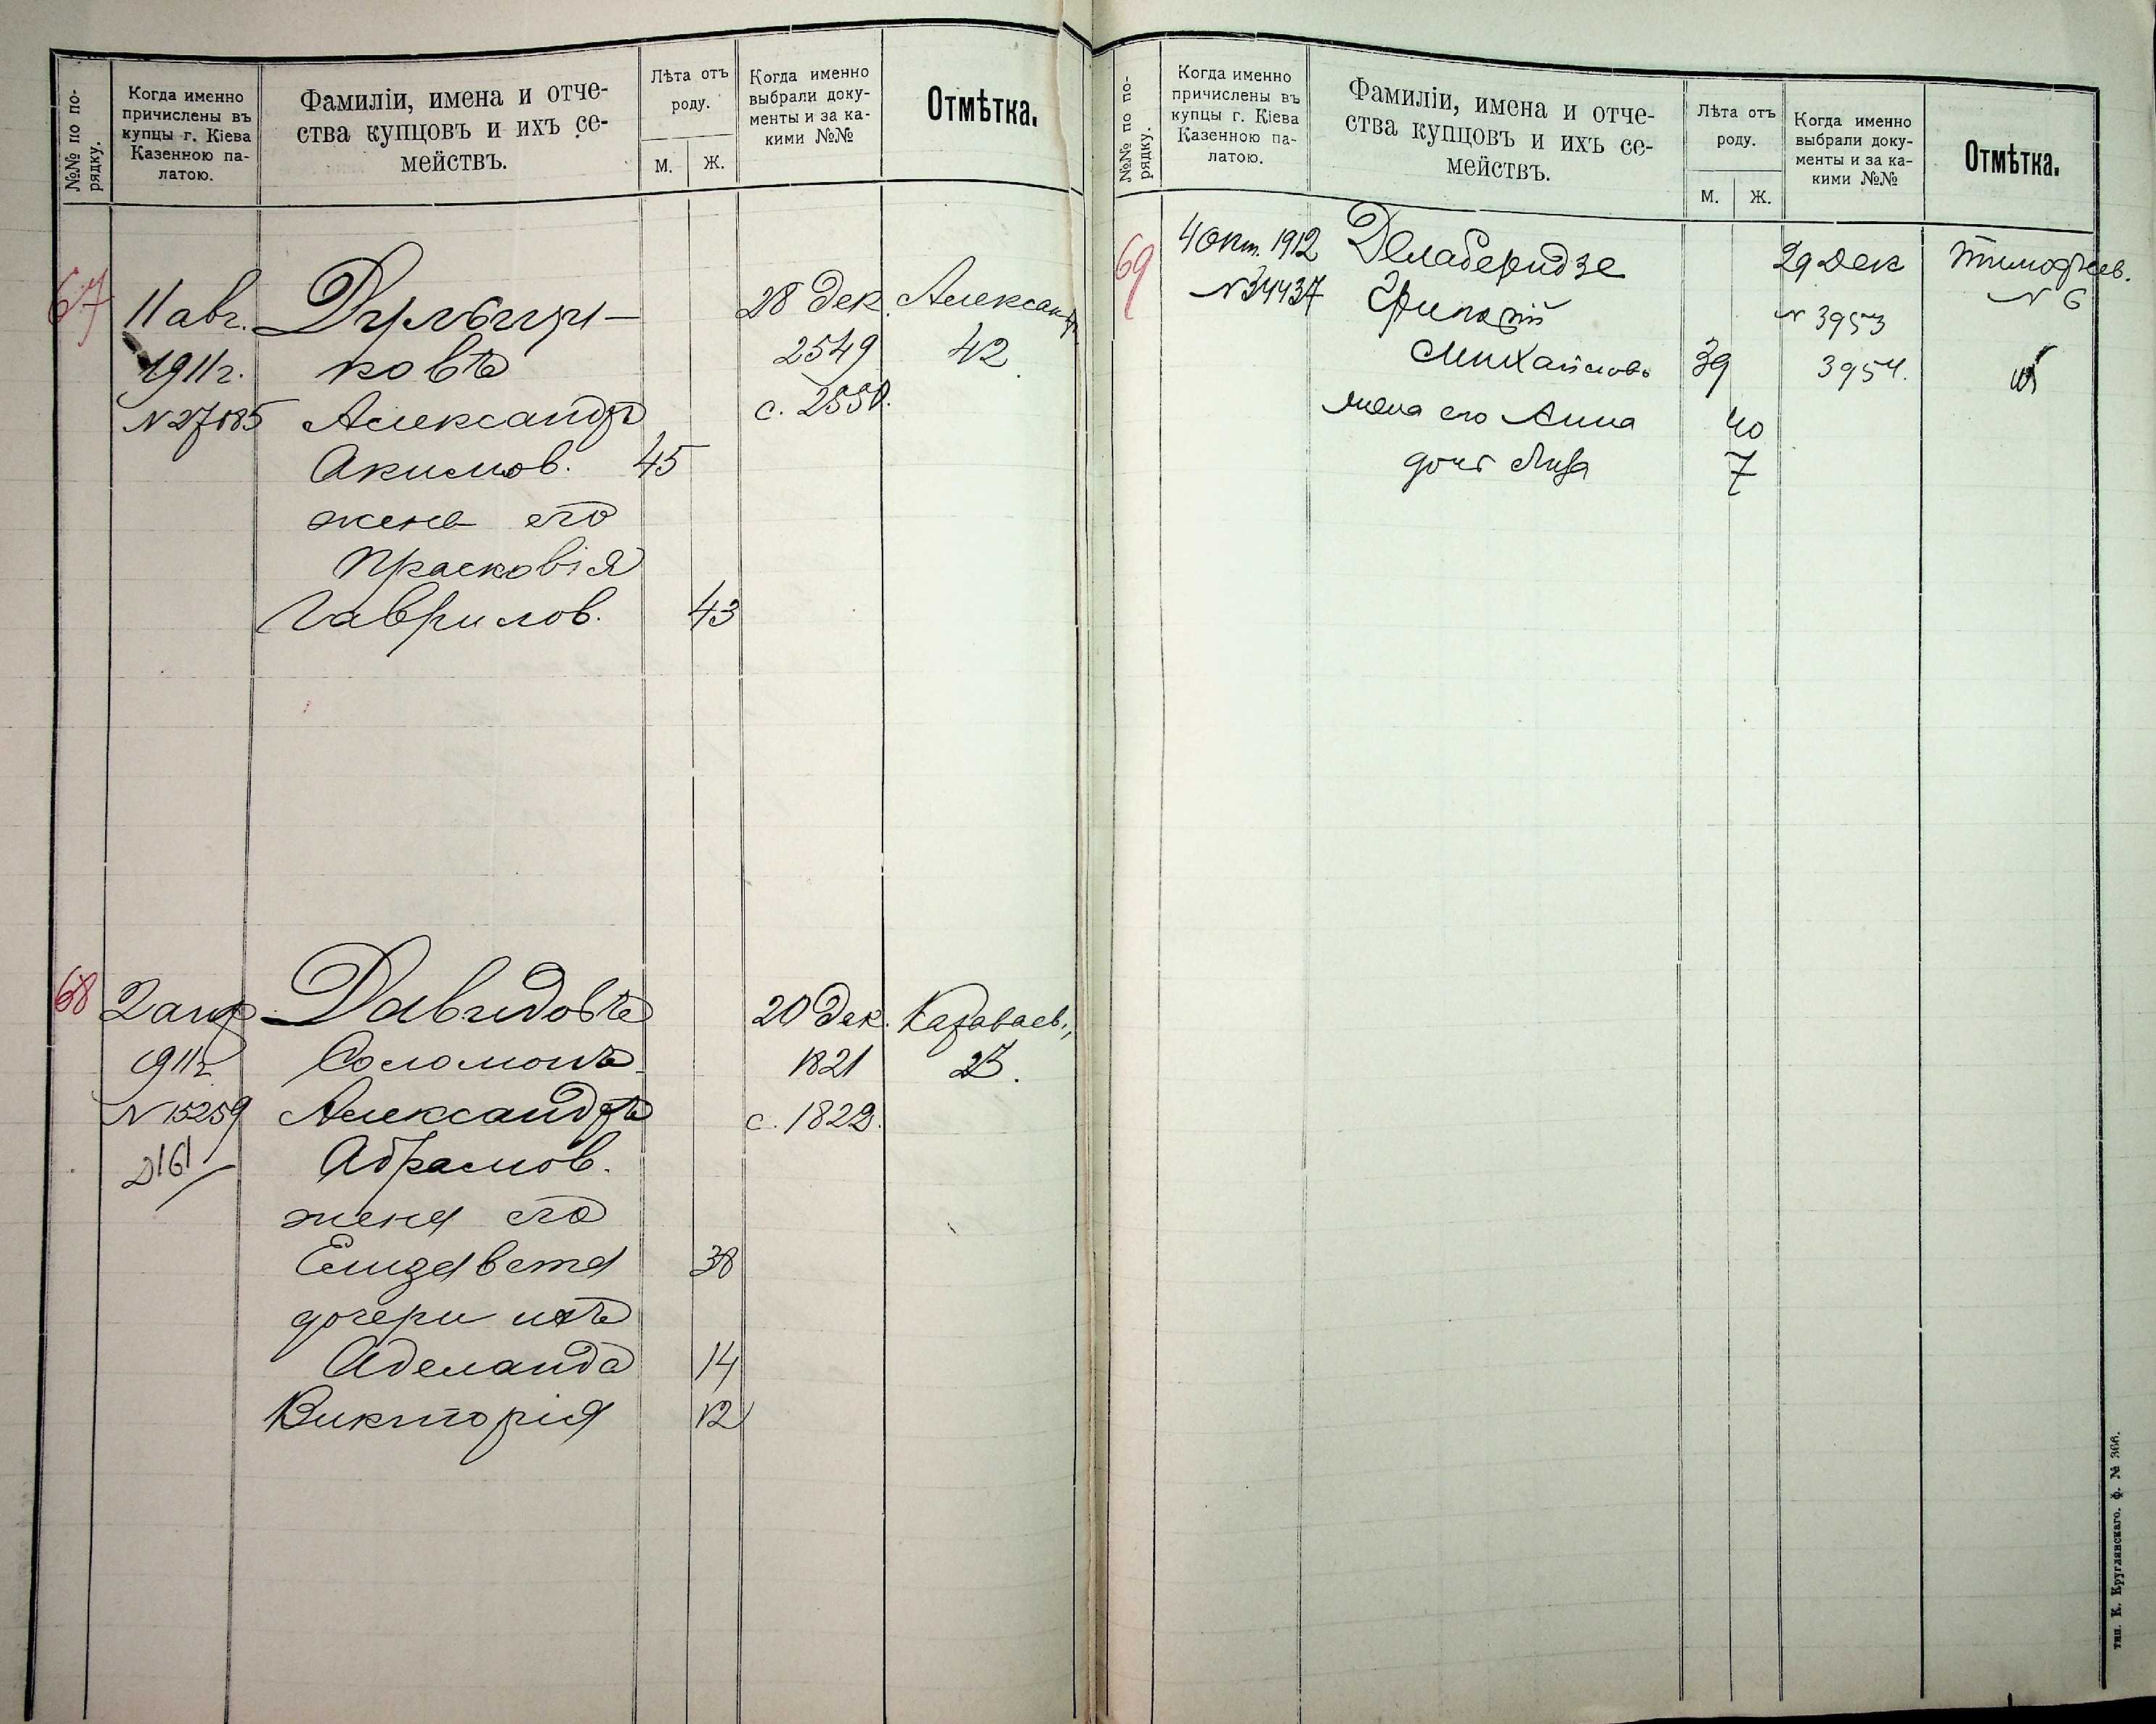 №№ по по-
рядку.
Когда именно
причислены въ
купцы г. Кіева
Казенною па-
латою.
Фамиліи, имена и отче-
ства купцовъ и ихъ се-
мействъ.
Лѣта отъ
роду.
М.
Ж.
Когда именно
выбрали доку-
менты и за ка-
кими №№
Отмѣтка.
67
11 авг.
1911г.
Дульчи-
ковъ
Александръ
Акимов. 45
жена его
Прасковія
Гаврилов. 43
28 дек.
2549
с. 2550.
Александр
42
68
1911г.
N 15259
2161
Давидовъ
Соломонъ
Александръ
Абрамов.
жена его
Елизавета 38
дочери ихъ
Аделаида 14
Викторія 12
20 дек.
1821
с. 1822.
Караваев.
23.
№№ по по-
рядку.
Когда именно
причислены въ
купцы г. Кіева
Казенною па-
латою.
Фамиліи, имена и отче-
ства купцовъ и ихъ се-
мействъ.
Лѣта отъ
роду.
М.
Ж.
Когда именно
выбрали доку-
менты и за ка-
кими №№
Отмѣтка.
69
4 Окт. 1912
N 34437
Михайловъ 39
жена его Анна 40
дочь Лиза 7
29 Дек
N 3953
3954.
Тимофеев.
N 6
тип. К. Круглянскаго. ф. № 366.